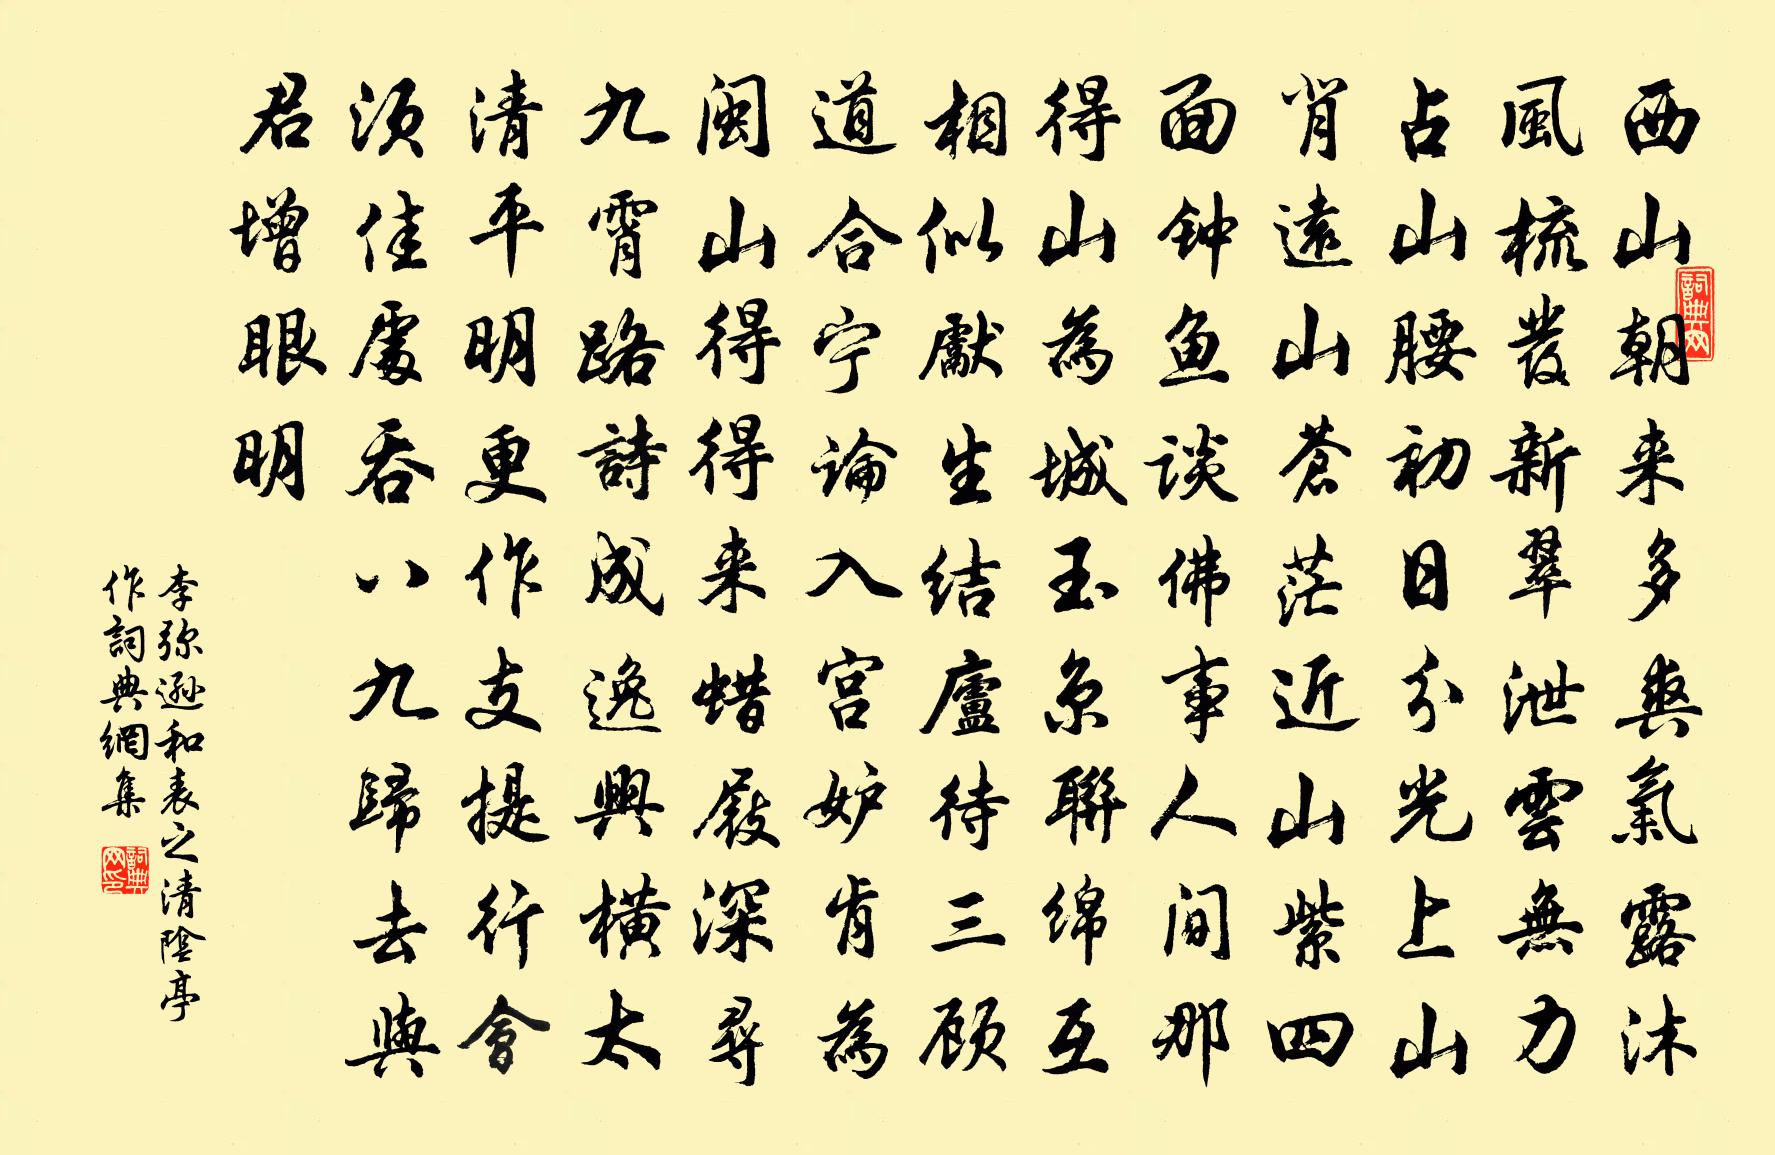 西山朝来多爽氣露沐
風梳發新翠泄雲無力
占山腰初日分光上山
肖遠山蒼茫近山紫四
面钟鱼谈佛事人间那
得山為城玉京聯绵互
相似獻生结廬待三顾
道合宁論入宫妒肯為
闽山得得来蜡屐深尋
九霄路詩成逸興横太
清平明更作支提行會
须佳處吞八九歸去與
君增眼明
李弥遜和表之清陰亭
作詞典網集
詞典网
詞典网印